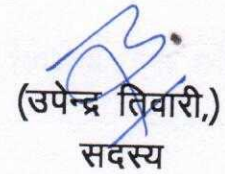 (उपेन्द्र तिवारी,)
सदस्य